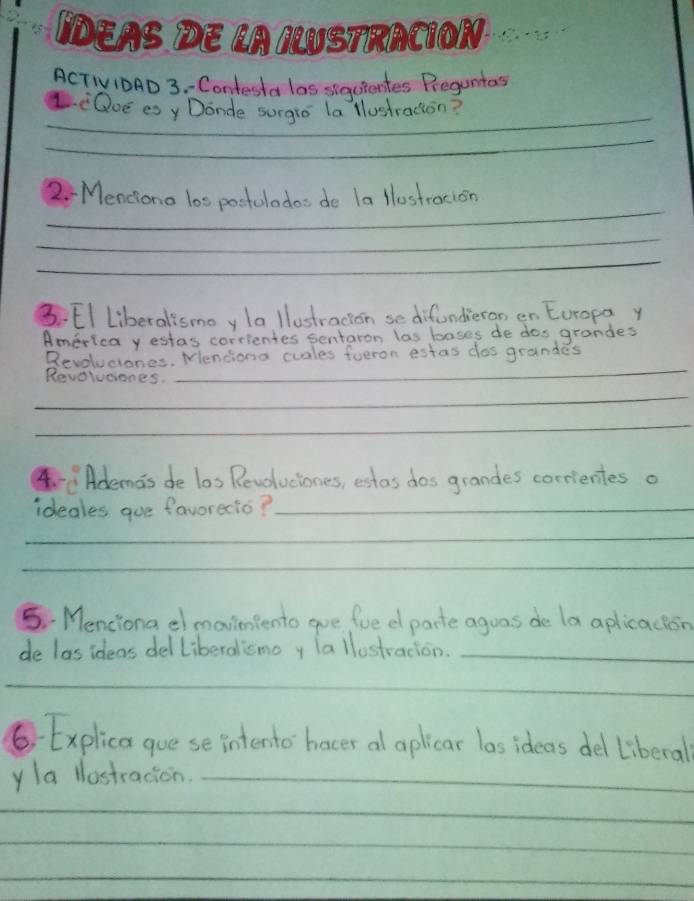 IDEAS DE LA ILUSTRACION
ACTIVIDAD 3.-Contesta las siguientes Preguntas
1.-¿Qué es y Dónde surgió la Ilustración?
2.-Menciona los postulados de la Ilustración
3.-El Liberalismo y la Ilustración se difundieron en Europa y
América y estas corrientes sentaron las bases de dos grandes
Revoluciones. Menciona cuales fueron estas dos grandes
Revoluciones.
4.-¿Además de las Revoluciones, estas dos grandes corrientes o
ideales que favoreció?
5.-Menciona el movimiento que fue el parte aguas de la aplicación
de las ideas del Liberalismo y la Ilustración.
6.-Explica que se intento hacer al aplicar las ideas del Liberali
y la Ilustración.